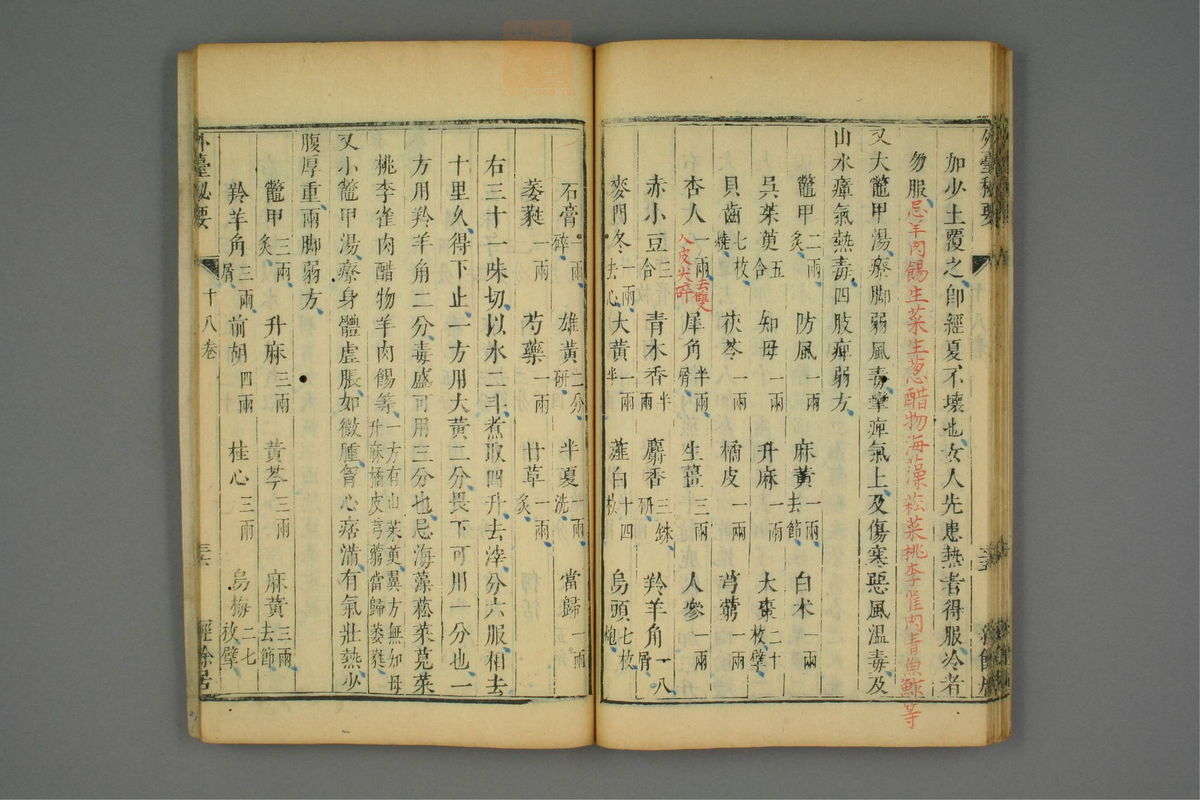 外臺秘要
如少土覆之即經夏不壞也女人先患熱者得服冷者
勿服忌羊肉餳生菜生葱醋物海藻菘菜桃李雀肉青魚鮓等
又大鼈甲湯療脚弱風毒攣痺氣上及傷寒惡風温毒及
山水瘴氣熱毒四肢痺弱方
鼈甲二兩炙 防風一兩 麻黄一兩去節 白术一兩
吳茱萸五合 知母一兩 升麻一兩 大棗二十枚擘
貝齒七枚燒 茯苓一兩 橘皮一兩 芎藭一兩
杏人一兩去雙人皮尖碎 犀角半兩屑 生薑三兩 人參一兩
赤小豆三合 青木香半兩 麝香三銖研 羚羊角一八屑
麥門冬一兩去心 大黄一兩半 薤白十四枚 烏頭七枚炮
石膏一兩碎 雄黄二分研 半夏一兩洗 當歸一兩
萎蕤一兩 芍藥一兩 甘草一兩炙
右三十一味切以水二斗煮取四升去滓分六服相去
十里久得下止一方用大黄二分畏下可用一分也一
方用羚羊角二分毒盛可用三分也忌海藻菘菜莧菜
桃李雀肉醋物羊肉餳等一方有山茱萸翼方無知母升麻橘皮芎藭當歸萎蕤
又小鼈甲湯療身體虛脹如微腫胷心痞滿有氣壯熱少
腹厚重兩脚弱方
鼈甲三兩炙 升麻三兩 黄芩三兩 麻黄三兩去節
羚羊角三兩屑 前胡四兩 桂心三兩 烏梅二七枚擘
外臺秘要 十八卷 三六 經餘居